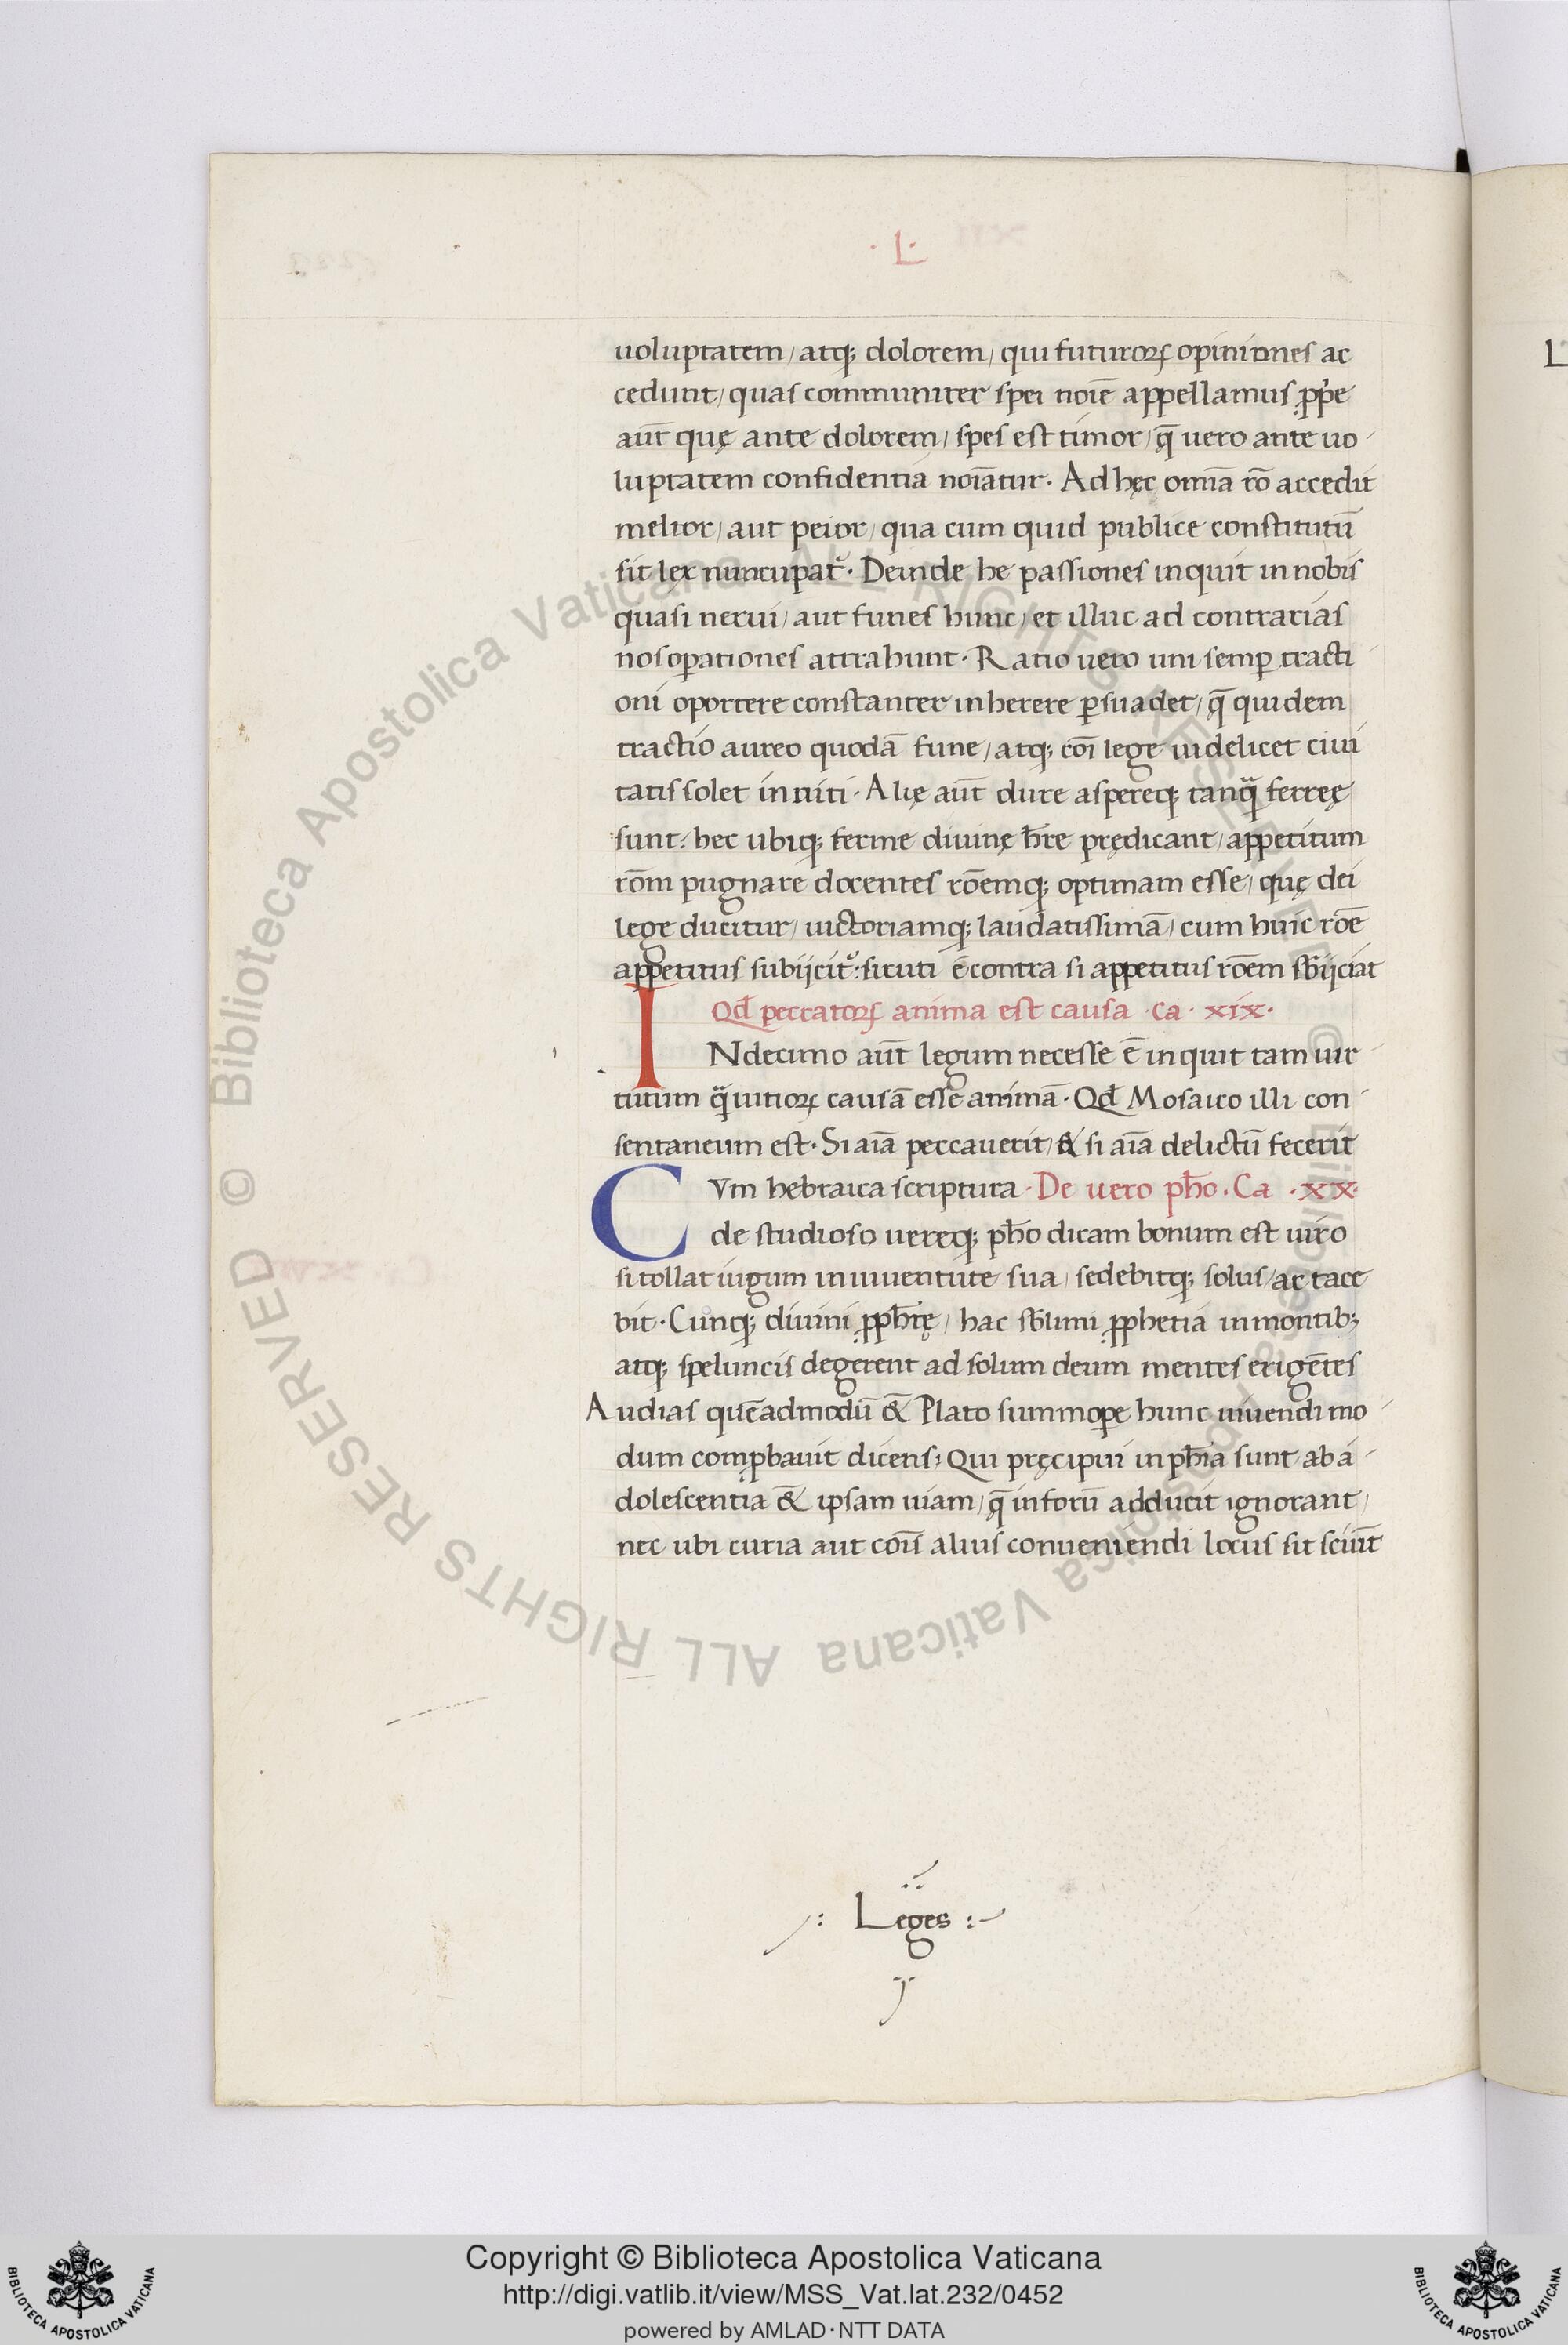 · L ·
uoluptatem / atq; dolorem / qui futuroꝝ opiniones ac
cedunt / quas communiter spei noīe appellamus ꝓpͥe
aūt quę ante dolorem / spes est timor / q̄ uero ante uo
luptatem confidentia noīatur · Ad hęc omīa rō accedit
melior / aut peior / qua cum quid publice constitutū
sit lex nuncupat᷑ · Deinde he passiones inquit in nobis
quasi nerui / aut funes hunc / et illuc ad contrarias
nos oꝑationes attrahunt · Ratio uero uni semꝑ tracti
oni oportere constanter inherere ꝑsuadet / q̄ quidem
tractio aureo quodā fune / atq; coī lege uidelicet ciui
tatis solet inniti · Alię aūt dure aspereq; tanq̃ ferreę
sunt : hec ubiq; ferme diuinę lr̄e prędicant / appetitum
rōni pugnare docentes rōemq; optimam esse / quę dei
lege ducitur / uictoriamq; laudatissimā / cum huic rōe
appetitus subijcit᷑ : sicuti econtra si appetitus rōem sb̄ijciat
Qđ peccatoꝝ anima est causa · Ca · xix ·
INdecimo aūt legum necesse ē inquit tam uir
tutum q̃ uitioꝝ causā esse animā · Qđ Mosaico illi con
sentaneum est · Si aīa peccauerit / & si aīa delictū fecerit
CVm hebraica scriptura · De uero ph̄o · Ca · xx ·
de studioso uereq; ph̄o dicam bonum est uiro
si tollat iugum in iuuentute sua / sedebitq; solus / ac tace
bit · Cunq; diuini ꝓph̄tę / hac sb̄limi ꝓphetia in montib;
atq; speluncis degerent ad solum deum mentes erigētes
Audias quēadmodū & Plato summoꝑe hunc uiuendi mo
dum comꝓbauit dicens : Qui pręcipui in ph̄ia sunt ab a
dolescentia & ipsam uiam / q̄ in forū adducit ignorant /
nec ubi curia aut coīs alius conueniendi locus sit sciūt
: Leges :
L
© Biblioteca Apostolica Vaticana ALL RIGHTS RESERVED © Biblioteca Apostolica Vaticana ALL RIGHTS RESERVED
BIBLIOTECA APOSTOLICA VATICANA
Copyright © Biblioteca Apostolica Vaticana
http://digi.vatlib.it/view/MSS_Vat.lat.232/0452
powered by AMLAD·NTT DATA
BIBLIOTECA APOSTOLICA VATICANA